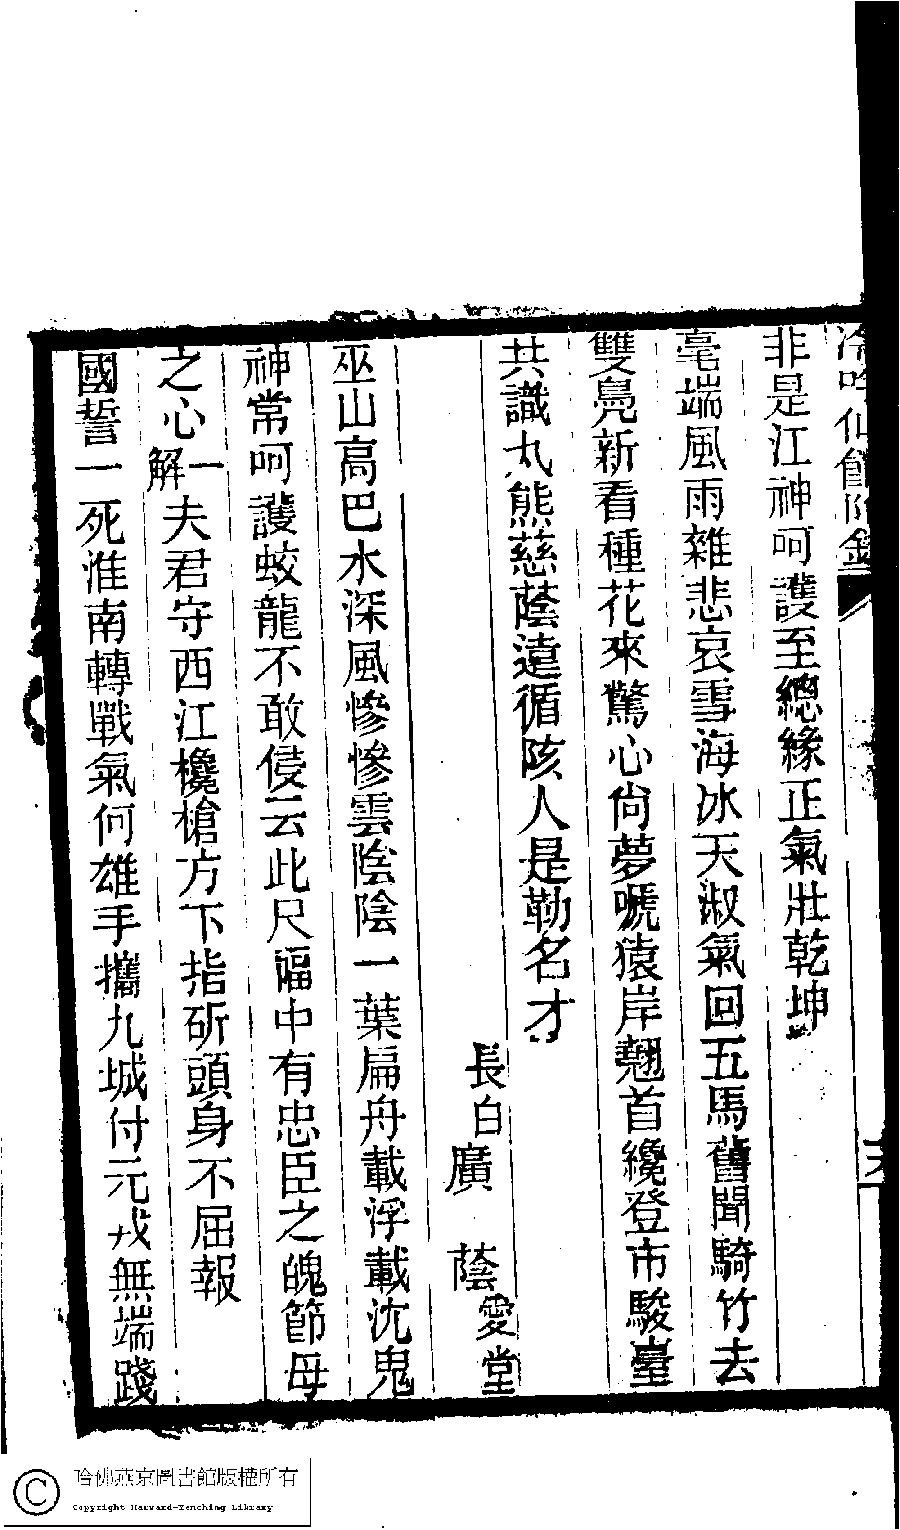 冷吟仙館附錄
非是江神呵護至總緣正氣壯乾坤
毫端風雨雜悲哀雪海冰天淑氣回五馬舊聞騎竹去
雙鳧新看種花來驚心尙夢嘷猿岸翹首纔登市駿臺
共識丸熊慈蔭遠循陔人是勒名才
長白廣 蔭愛堂
巫山高巴水深風慘慘雲陰陰一葉扁舟載浮載沈鬼
神常呵護蛟龍不敢侵云此尺福中有忠臣之魄節母
之心一解夫君守西江欃槍方下指斫頭身不屈報
國誓一死淮南轉戰氣何雄手攜九城付元戎無端踐
哈佛燕京圖書館版權所有
Copyright Harvard-Yenching Library